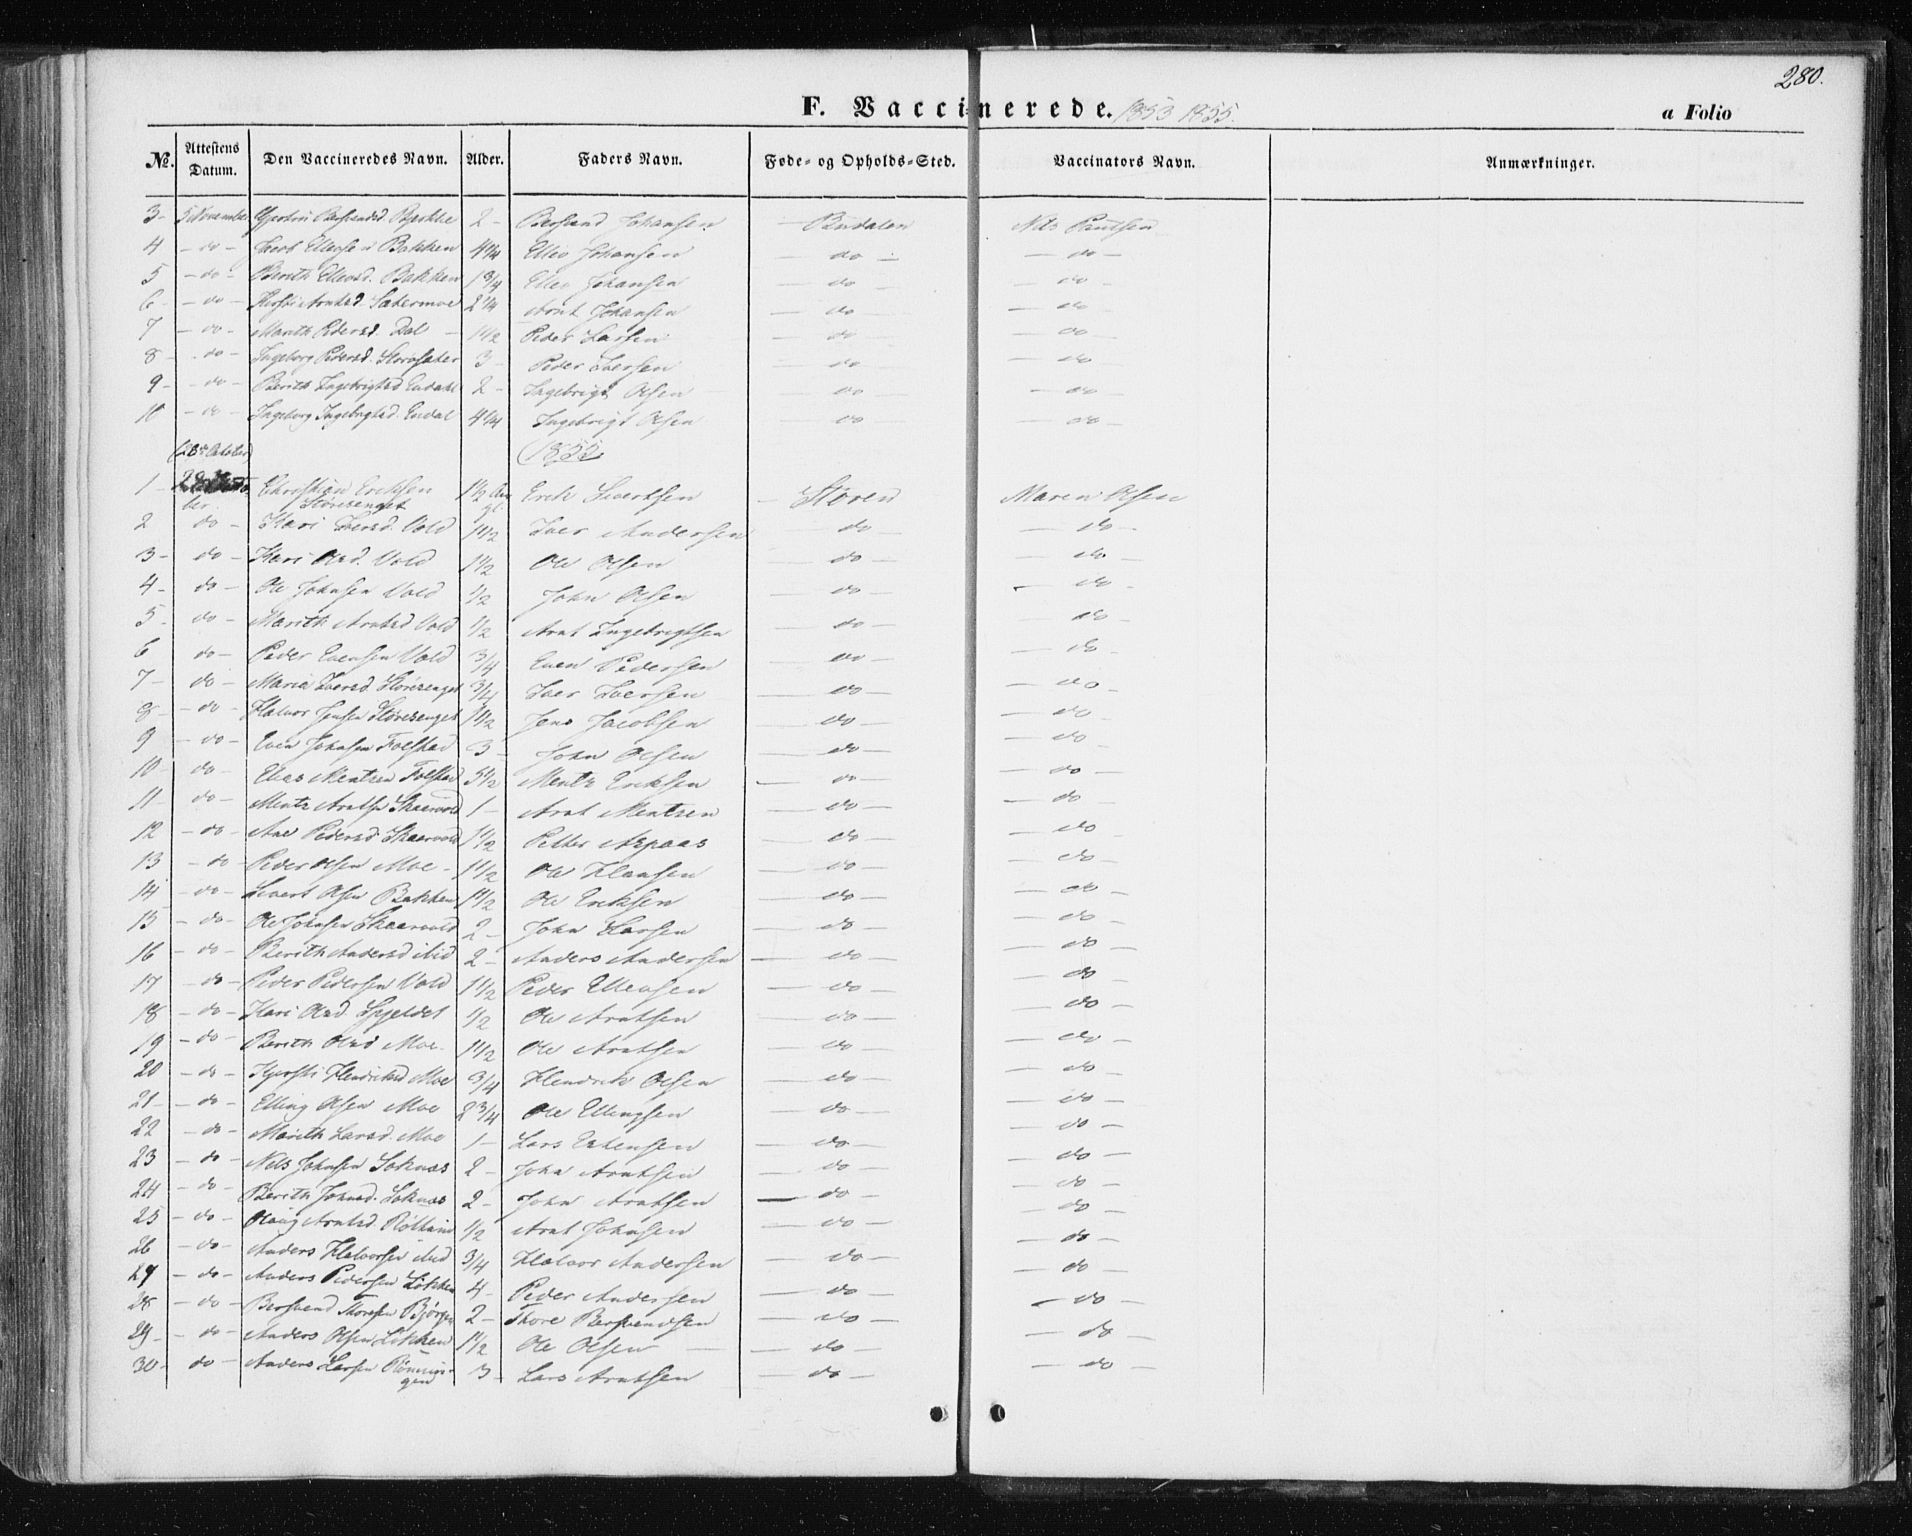 280.
F. Vaccinerede. 1853 1855. a Folio
№. Attestens Datum. Den Vaccineredes Navn. Alder. Faders Navn. Føde- og Opholds-Sted. Vaccinators Navn. Anmærkninger.
3 - 5 November Bersvendsd Bakke 2 - Bersvend Johansen - Budalen Nils Paulsen
4 - do - Ellevsen Bakken 4 1/4 Ellev Johansen - do - - do -
5 - do - Berith Ellevsd. Bakken 1 3/4 Ellev Johansen - do - - do -
6 - do - Kjersti Arntsd. Sætermoe 2 1/4 Arnt Johansen - do - - do -
7 - do - Marith Pedersd. Dal - 1 1/2 Peder Larsen - do - - do -
8 - do - Ingeborg Pedersd. Storesæter 3 - Peder Iversen - do - - do -
9 - do - Berith Ingebrigtsd Endahl 2 - Ingebrigt Olsen - do - - do -
10 - do - Ingeborg Ingebrigtsd. Endal 4 1/4 Ingebrigt Olsen - do - - do -
(28de October) (1855)
1 - Christian Eriksen Størensenget 1 1/2 Aar gl. Erik Sivertsen - Støren Maren Olsen
2 do - Kari Iversd. Vold 1 1/2 Iver Andersen - do - - do -
3 - do - Kari Olsd. Vold 1 1/2 Ole Olsen - do - - do -
4 - do - Ole Johnsen Vold 1/2 John Olsen - do - - do -
5 - do - Marith Arntsd Vold 1/2 Arnt Ingebrigtsen - do - - do -
6 do - Peder Evensen Vold 3/4 Even Pedersen - do - - do -
7 - do - Maria Iversd. Størensenget 3/4 Iver Iversen - do - - do -
8 - do - Halvor Jensen Størensenget 1 1/2 Jens Jacobsen - do - - do -
9 - do - Even Johnsen Folstad 3 - John Olsen - do - - do -
10 - do - Elias Mentzen Folstad 5 1/2 Mentz Eriksen - do - - do -
11 - do - Mentz Arntsen Skaarvold 1 - Arnt Mentzen - do - - do -
12 - do - Ane Pedersd. Skaarvold 1 1/2 Petter Aspaas - do - - do -
13 - do - Peder Olsen Moe - 1 1/2 Ole Hansen - do - - do -
14 - do - Sivert Olsen Bakken 1 1/2 Ole Eriksen - do - - do -
15 - do - Ole Johnsen Skaarvold 2 - John Larsen - do - - do -
16 - do - Berith Andersd 2 - Anders Andersen - do - - do -
17 - do - Peder Pedersen Vold 1 1/2 Peder Ellevsen - do - - do -
18 - do - Kari Olsd. 1/2 Ole Arntsen - do - - do -
19 - do - Berith Olsd Moe. 1 1/2 Ole Arntsen - do - - do -
20 - do - Kjersti Hendriksd Moe 3/4 Hendrik Olsen - do - - do -
21 - do - Elling Olsen Moe 2 3/4 Ole Ellingsen - do - - do -
22 - do - Marith Larsd. Moe 1 - Lars Estensen - do - - do -
23 - do - Nels Johnsen Soknæs 2 - John Arntsen - do - - do -
24 - do - Berith Johnsd. Soknæs 2 - John Arntsen - do - - do -
25 - do - Arntsd. 1/2 Arnt Johnsen - do - - do -
26 - do - Anders Halvorsen 3/4 Halvor Andersen - do - - do -
27 - do - Anders Pedersen Løkken 4 - Peder Andersen - do - - do -
28 - do - Bersvend Thoresen Bjørgen 2 - Thore Bersvendsen - do - - do -
29 - do - Anders Olsen Løkken 1 1/2 Ole Olsen - do - - do -
30 - do - Anders Larsen Rønningen 3 - Lars Arntsen - do - - do -